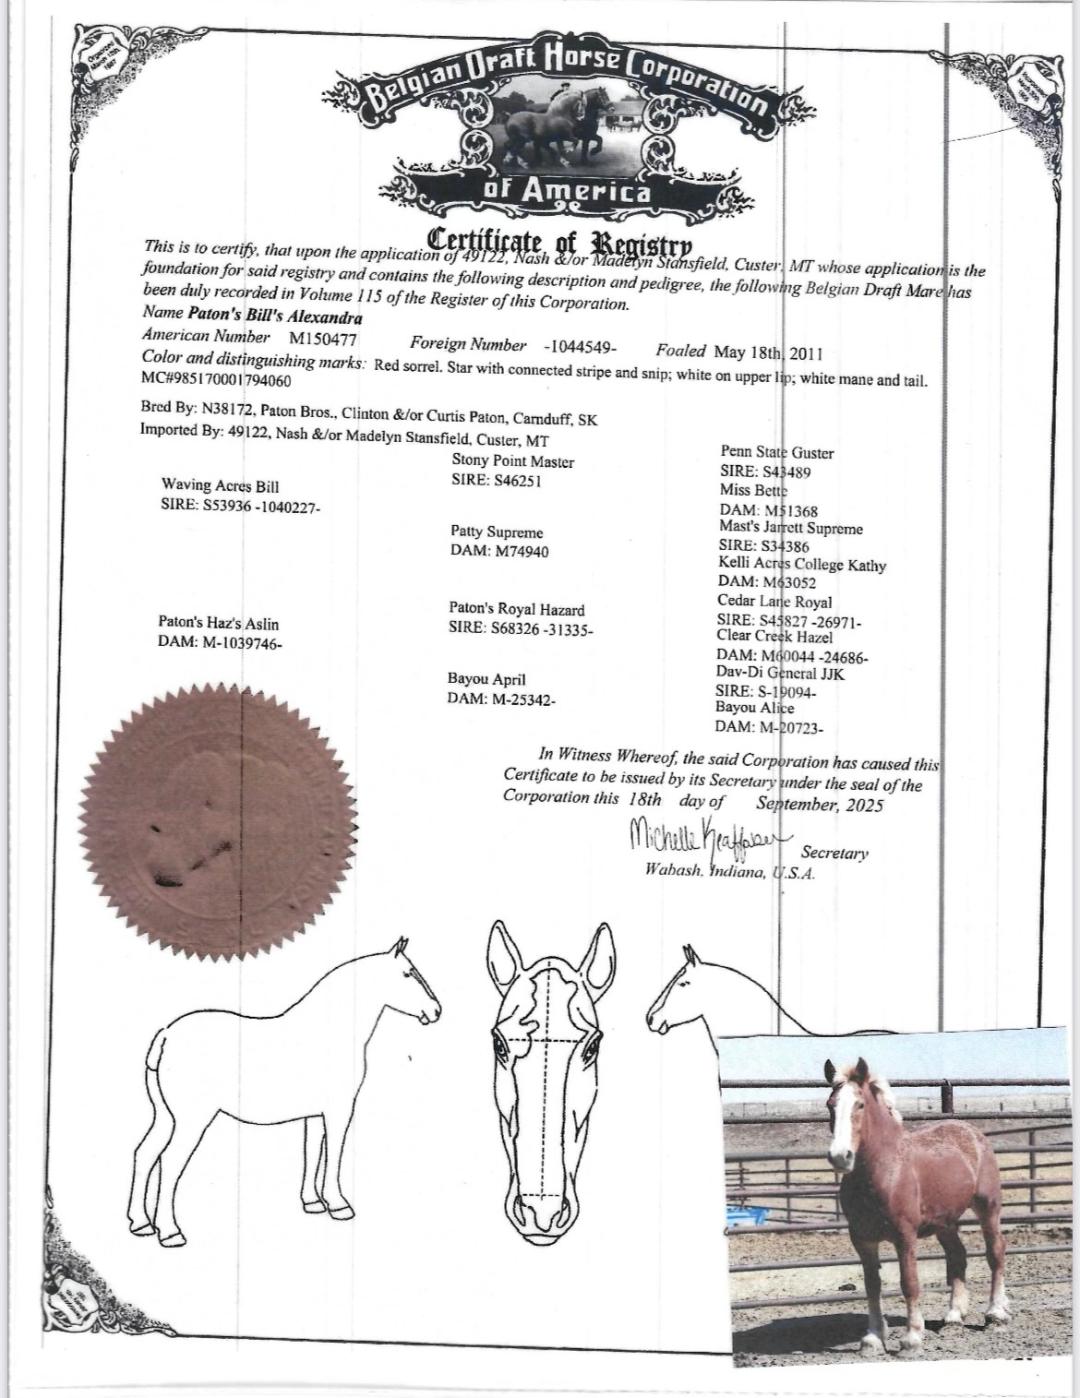 Belgian Draft Horse Corporation
of America
Certificate of Registry
This is to certify, that upon the application of 49122, Nash &/or Madelyn Stansfield, Custer, MT whose application is the
foundation for said registry and contains the following description and pedigree, the following Belgian Draft Mare has
been duly recorded in Volume 115 of the Register of this Corporation.
Name Paton's Bill's Alexandra
American Number M150477 Foreign Number -1044549- Foaled May 18th, 2011
Color and distinguishing marks: Red sorrel. Star with connected stripe and snip; white on upper lip; white mane and tail.
MC#985170001794060
Bred By: N38172, Paton Bros., Clinton &/or Curtis Paton, Carnduff, SK
Imported By: 49122, Nash &/or Madelyn Stansfield, Custer, MT
Waving Acres Bill
SIRE: S53936 -1040227-
Paton's Haz's Aslin
DAM: M-1039746-
Stony Point Master
SIRE: S46251
Patty Supreme
DAM: M74940
Paton's Royal Hazard
SIRE: S68326 -31335-
Bayou April
DAM: M-25342-
Penn State Guster
SIRE: S43489
Miss Bette
DAM: M51368
Mast's Jarrett Supreme
SIRE: S34386
Kelli Acres College Kathy
DAM: M63052
Cedar Lane Royal
SIRE: S45827 -26971-
Clear Creek Hazel
DAM: M60044 -24686-
Dav-Di General JJK
SIRE: S-19094-
Bayou Alice
DAM: M-20723-
In Witness Whereof, the said Corporation has caused this
Certificate to be issued by its Secretary under the seal of the
Corporation this 18th day of September, 2025
Michelle Secretary
Wabash, Indiana, U.S.A.